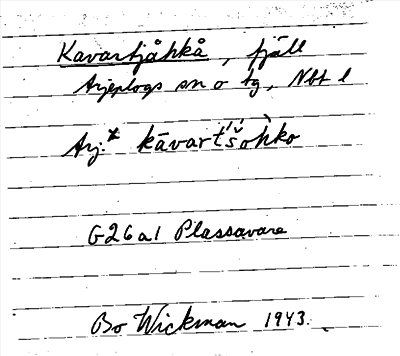 Kavartjåhkå, fjäll
Arjeplogs sn o tg, Nbt l
Arj.* kāvart́š́òhko
G26a1 Plassavare
Bo Wickman 1943.